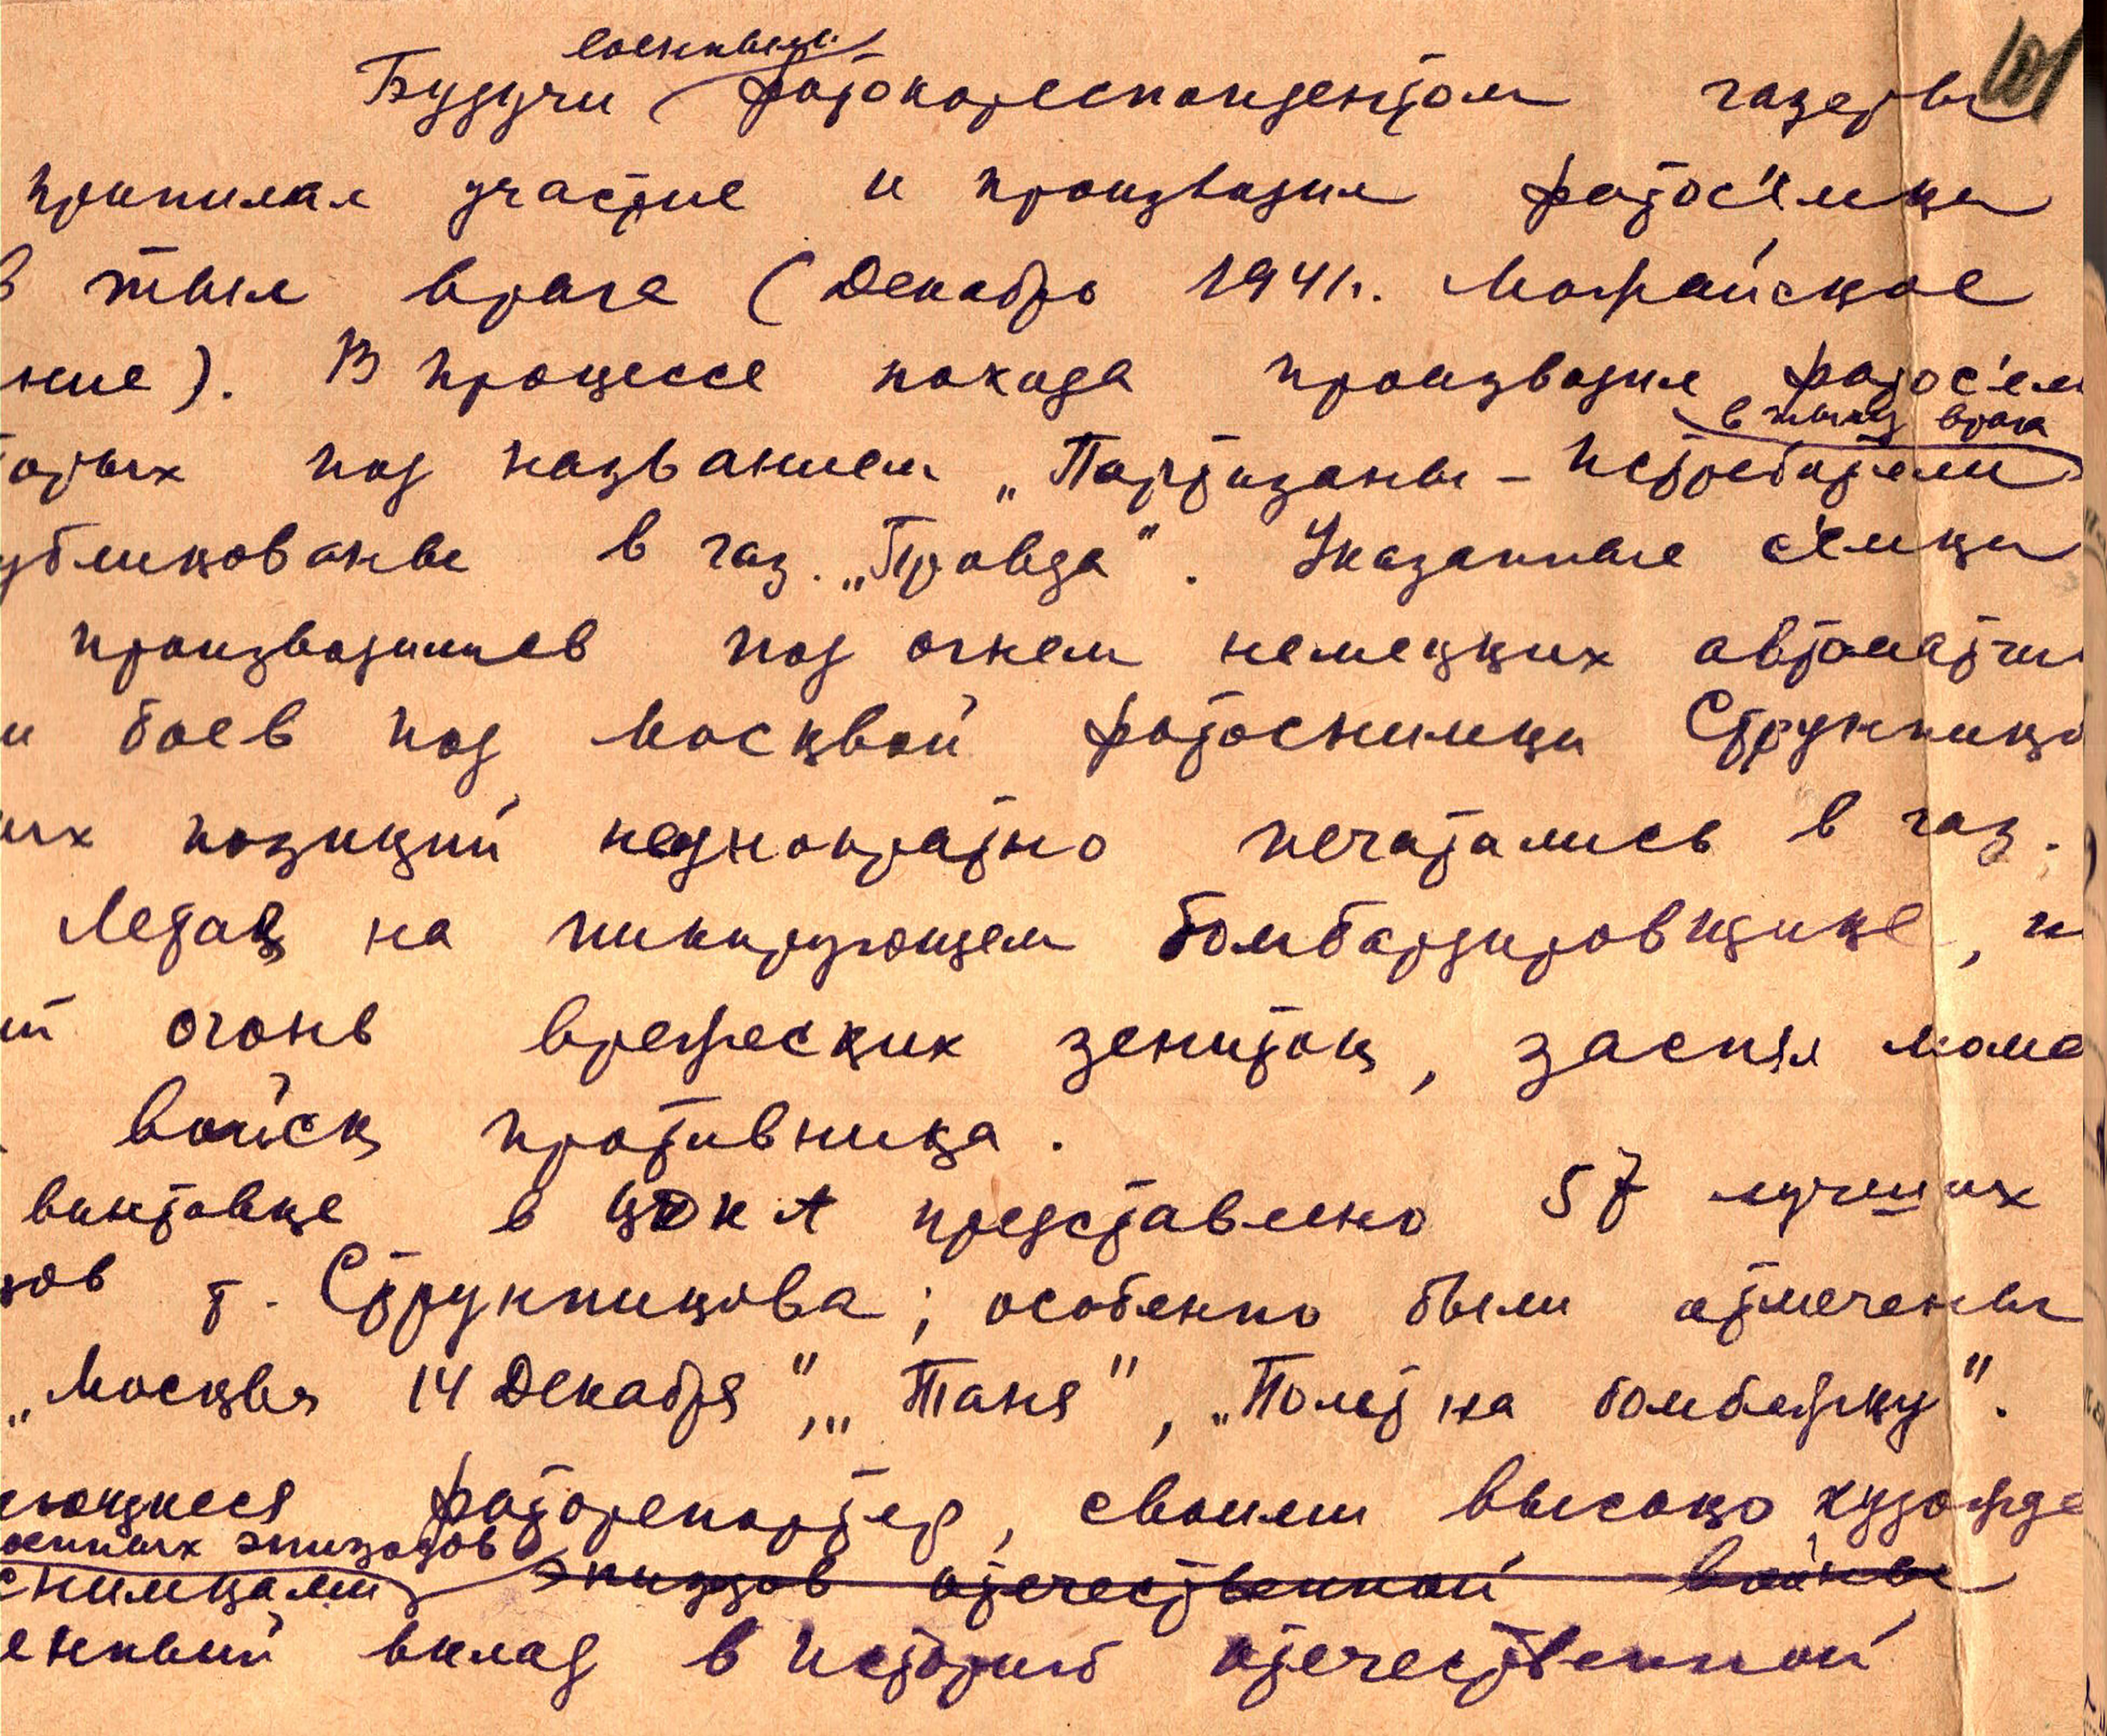 военным
Будучи фотокореспондентом газеты
принимал участие и производил фотос'емки
в тыл врага (Декабрь 1941г. Можайское
ние). В процессе похода производил фотос'ем
в тылу врага
торых под названием „Партизаны – истребители
убликованы в газ. „Правда". Указанные с'емки
производились под огнем немецких автоматчи
и боев под Москвой фотоснимки Струнников
ых позиций неоднократно печатались в газ.
Летая на пикирующем бомбардировщике, н
й огонь вражеских зениток, заснял моме
войск противника.
выставке в ЦДКА представлено 57 лучших
ков т. Струнникова; особенно были отмечены
„Москва 14 Декабря", „Таня", „Полет на бомбежку".
ающийся фоторепортер, своими высоко художе
военных эпизодов
снимками эпизодов отечественной войны
енный вклад в историю отечественной